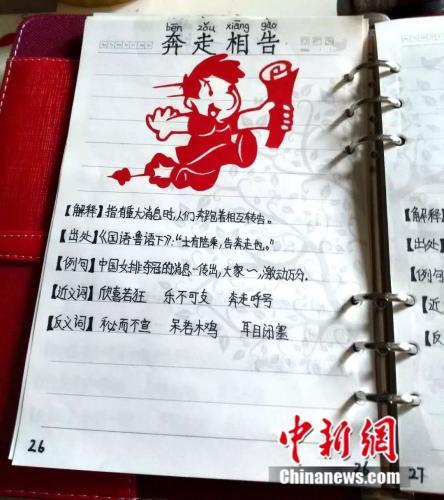 bēn zǒu xiāng gào
奔走相告
【解释】指有重大消息时,人们奔跑着相互转告。
【出处】《国语·鲁语下》:“士有陪乘,告奔走也。”
【例句】中国女排夺冠的消息一传出,大家~,激动万分。
【近义词】欣喜若狂 乐不可支 奔走呼号
【反义词】秘而不宣 呆若木鸡 耳目闭塞
26
【解释】
【出处】
【例句】
【近
【反
27
中新网
Chinanews.com